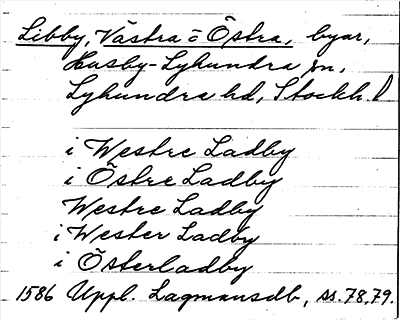 Libby, Västra o Östra, byar,
Husby-Lyhundra sn,
Lyhundra hd, Stockh.
i Westre Ladby
i Östre Ladby
Westre Ladby
i Wester Ladby
i Österladby
1586 Uppl. Lagmansdb, ss. 78, 79.